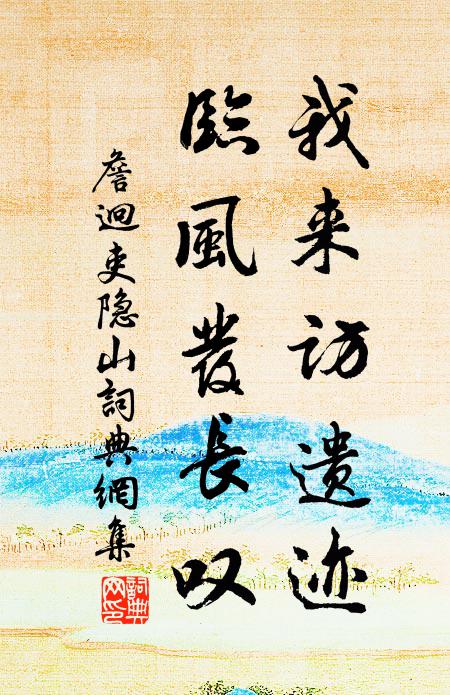 我来访遗迹
臨風發長叹
詹迥吏隐山詞典網集
詞典